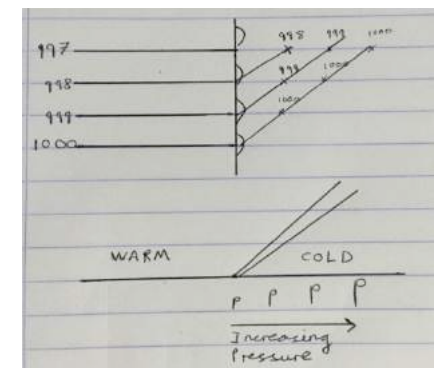 997
998 999 1000
998
998 1000
999
1000
1000
WARM COLD
P P P P
Increasing
Pressure